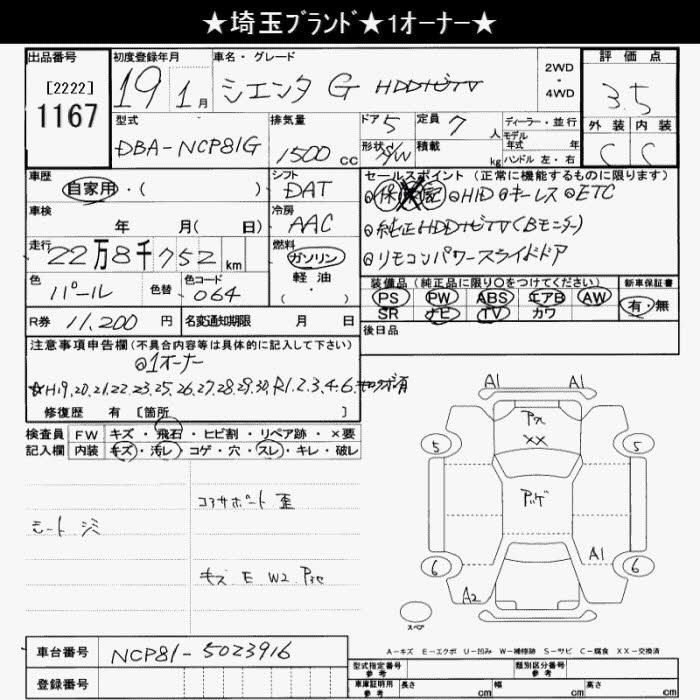 ★埼玉ﾌﾞﾗﾝﾄﾞ★1オーナー★
出品番号 初度登録年月 車名・グレード 2WD・4WD 評価点
[2222]
1167
19 1月 シエンタ G HDDナビTV 3.5
型式 排気量 ドア 5 定員 7人 ディーラー・並行
モデル年式 年
外装 内装
DBA-NCP81G 1500cc 形状 S/W 積載 kg ハンドル 左・右 C C
車歴 シフト セールスポイント (正常に機能するものに限ります)
自家用・( ) DAT
◎HID ◎キーレス ◎ETC
車検 年 月( 日) 冷房 AAC
◎純正HDDナビTV(Bモニター)
走行 22万8千752km 燃料 ガソリン・軽油・( )
◎リモコンパワースライドドア
色 パール 色替 色コード 064
装備品 (純正品に限り○をつけてください) 新車保証書
PS PW ABS エアB AW 有・無
SR ナビ TV カワ
R券 11,200円 名変通知期限 月 日
後日品
注意事項申告欄(不具合内容等は具体的に記入して下さい)
◎1オーナー
☆H19,20,21,22,23,25,26,27,28,29,30,R1,2,3,4,6
修復歴 有 [箇所 ]
検査員記入欄 FW キズ・飛石・ヒビ割・リペア跡・×要
内装 キズ・汚レ・コゲ・穴・スレ・キレ・破レ
A1 A1
アス
XX
5 5
コアサポート歪
シート シミ
アッゲ
A1
6 6
キズ E W2
A2
スペア
A-キズ E-エクボ U-凹み W-補修跡 S-サビ C-腐食 XX-交換済
車台番号 NCP81-5023916
型式指定番号 参考 類別区分番号 参考
登録番号
車庫証明用 参考 長さ cm 幅 cm 高さ cm